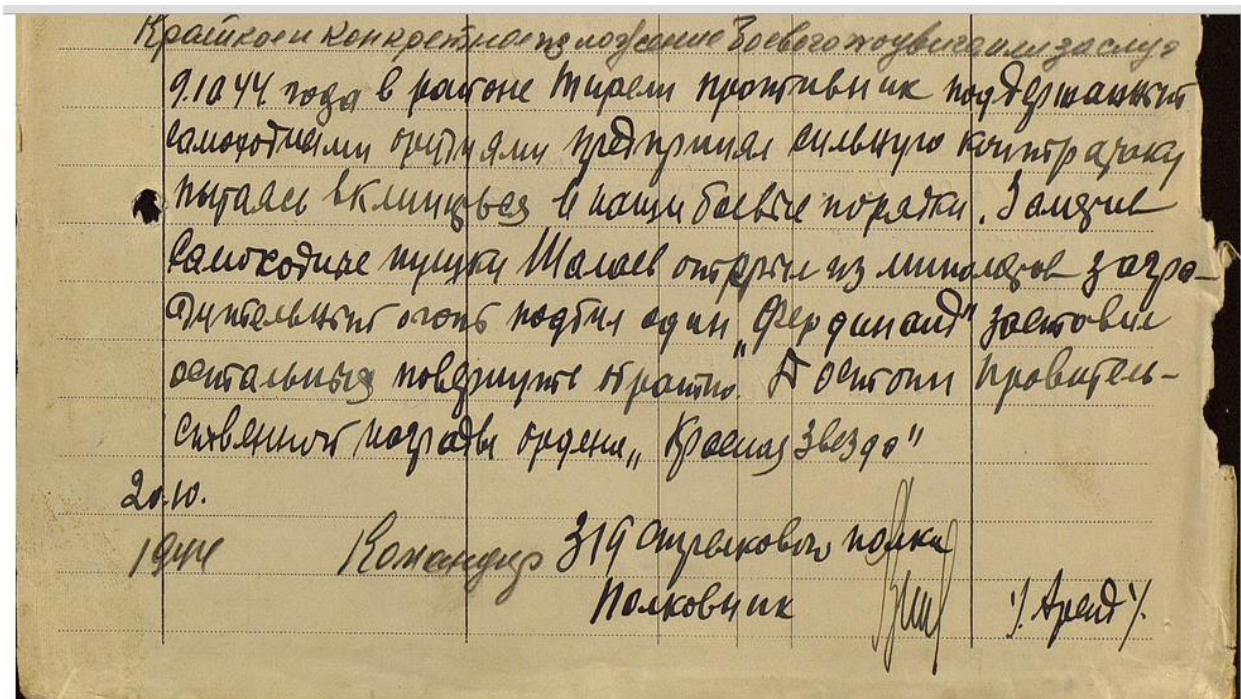 Краткое и конкретное изложение боевого подвига или заслуг
9.10 44 года в районе Тирели противник поддержанный
самоходными орудиями предпринял сильную контратаку
пытаясь вклиниться в наши боевые порядки. Заметив
самоходные пушки Шалаев открыл из минометов загра-
дительный огонь подбил один „Фердинанд" заставил
остальных повернуть обратно. Достоин правитель-
ственной награды ордена „Красная Звезда"
20.10.
1944 Командир 319 стрелкового полка
Полковник /. Аренд /.